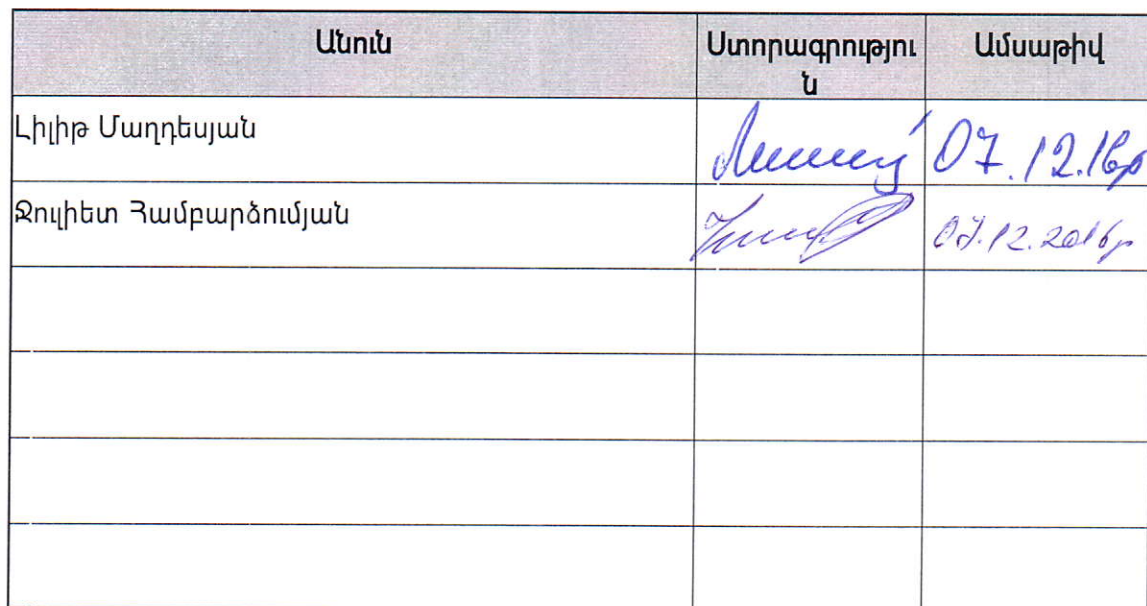 Անուն
Ստորագրությու
ն
Ամսաթիվ
Լիլիթ Մաղդեսյան
07.12.16թ
Ջուլիետ Համբարձումյան
07.12.2016թ